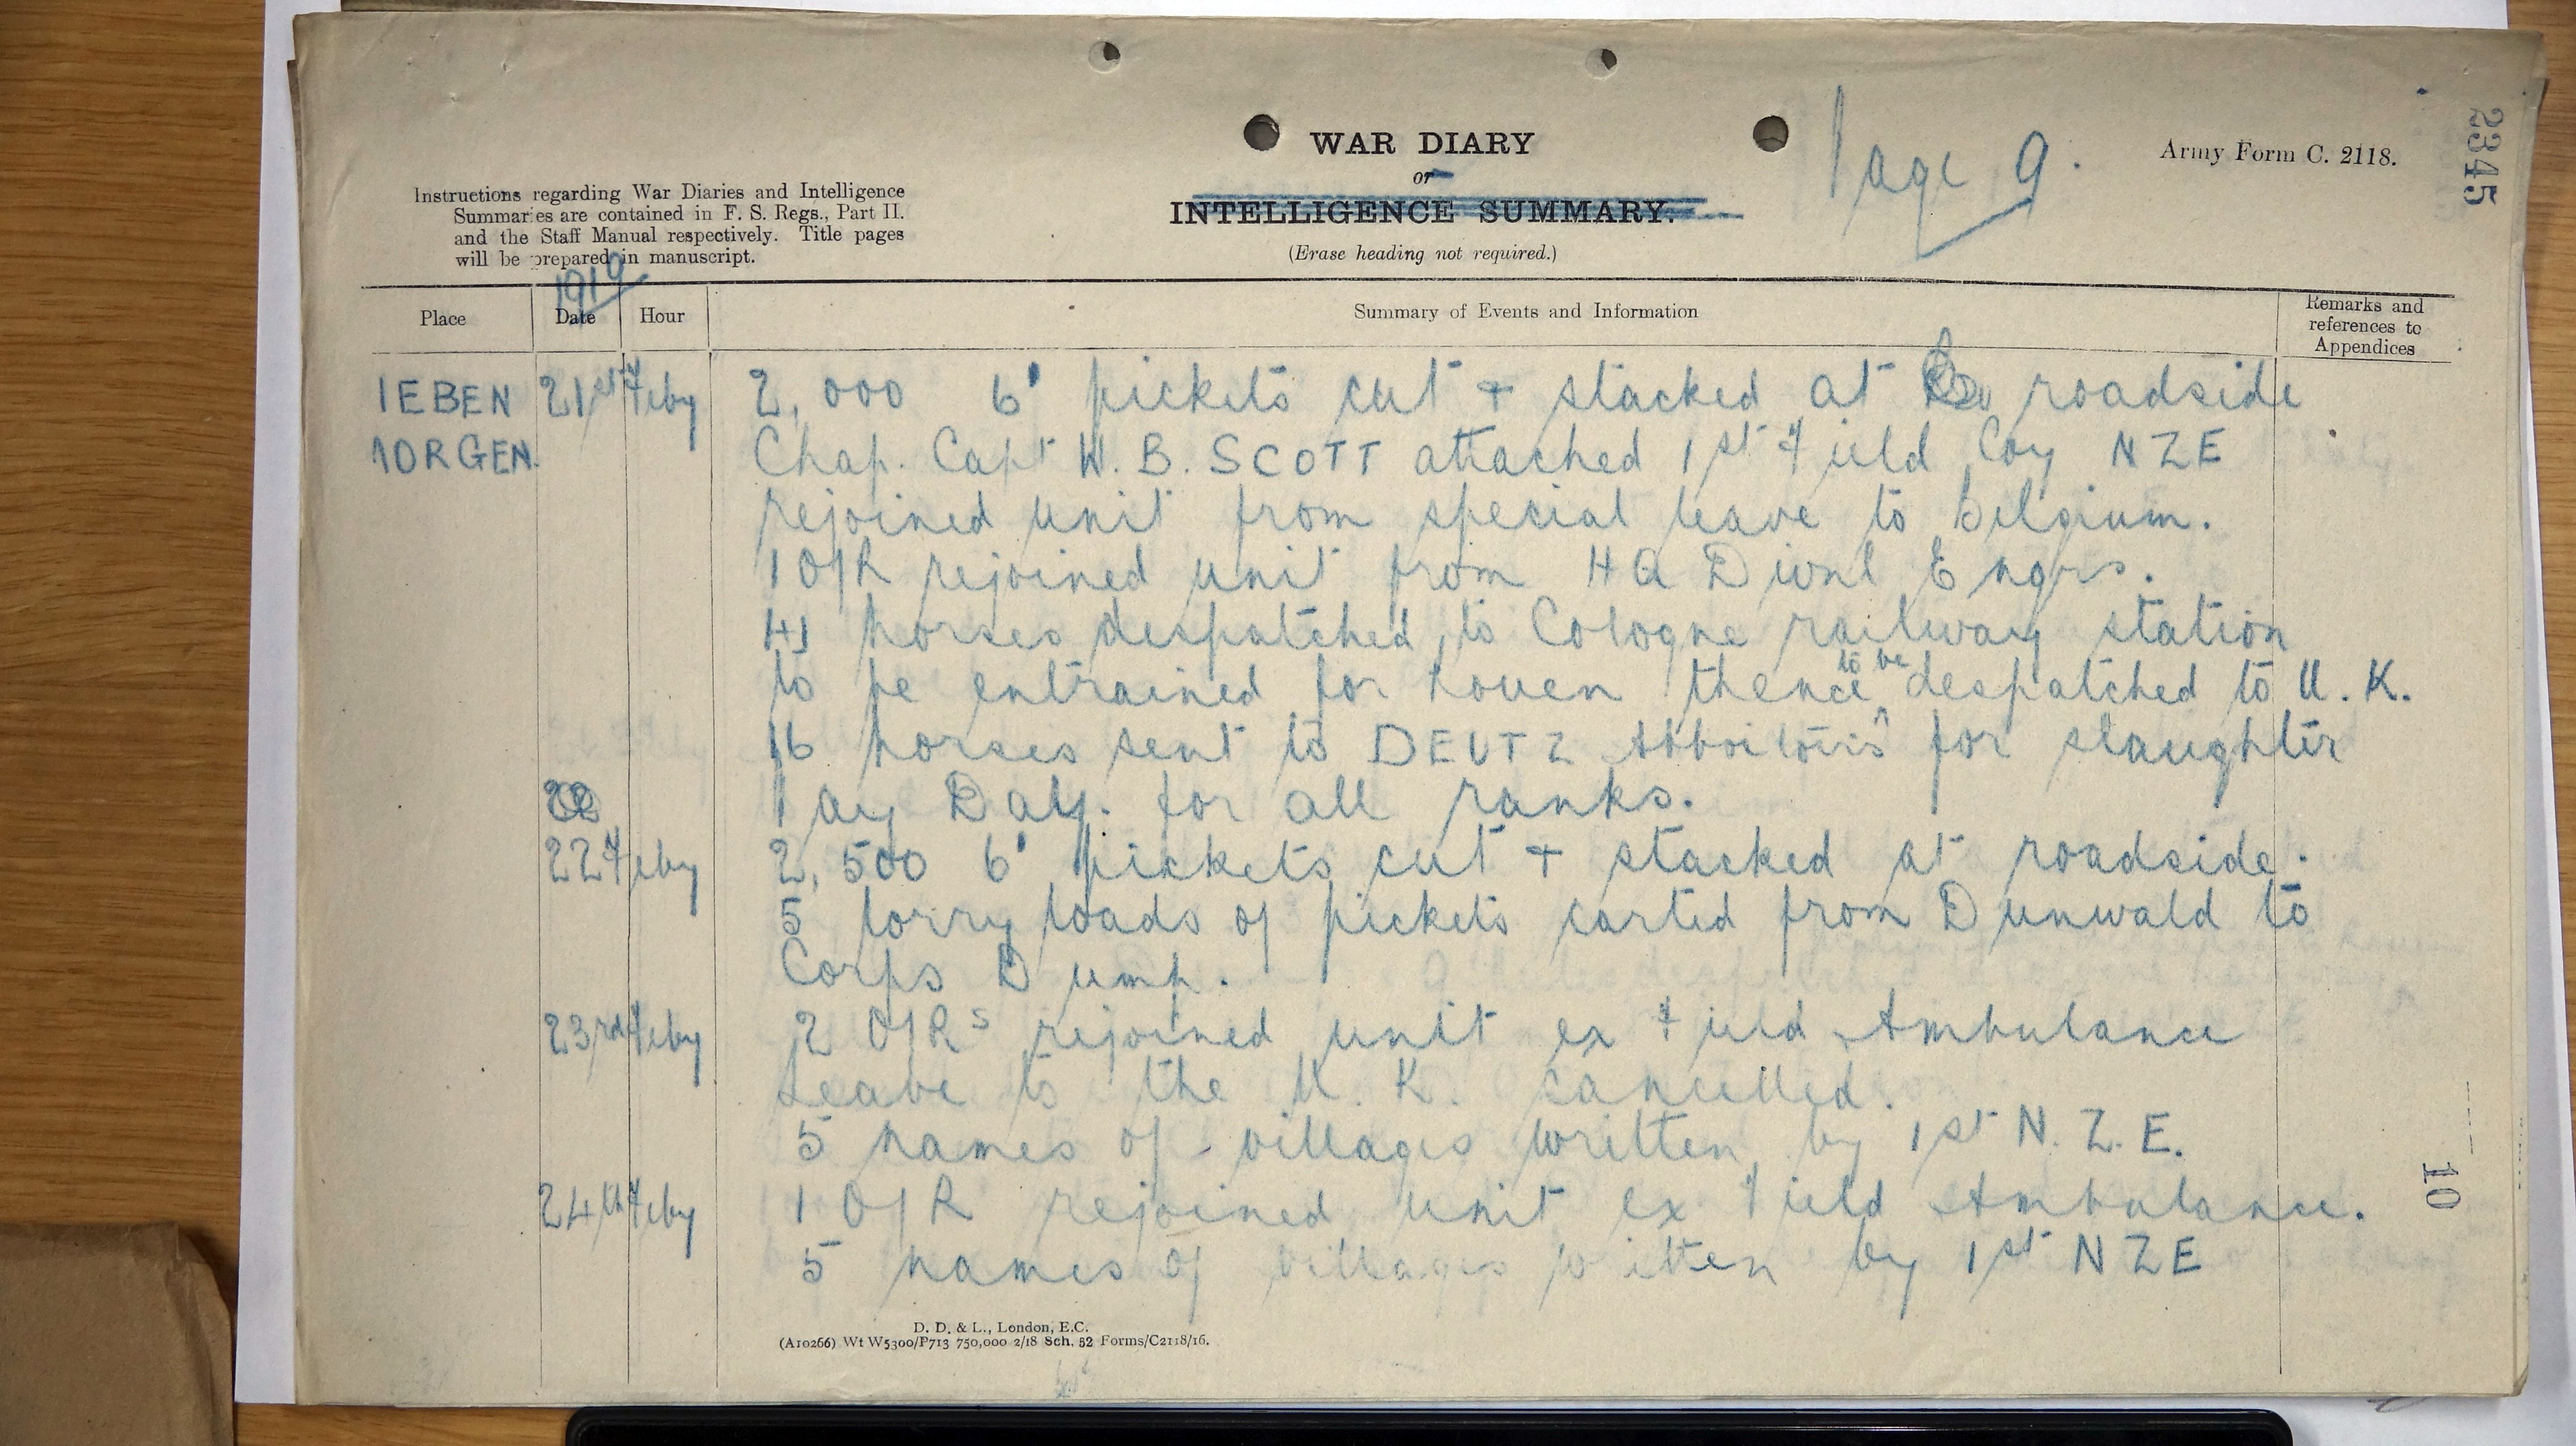 WAR DIARY
or
INTELLIGENCE SUMMARY.
(Erase heading not required.)
Page 9.
Army Form C. 2118.
2345
Instructions regarding War Diaries and Intelligence
Summaries are contained in F. S. Regs., Part II.
and the Staff Manual respectively. Title pages
will be prepared in manuscript.
1919
Place Date Hour Summary of Events and Information Remarks and references to Appendices
IEBEN 21st Feby 2,000 6' pickets cut + stacked at roadside
MORGEN. Chap. Capt W. B. SCOTT attached 1st Field Coy NZE
rejoined unit from special leave to Belgium.
1 O/R rejoined unit from HQ Divnl Engrs.
41 horses despatched to Cologne railway station
to be entrained for Rouen thence to be despatched to U. K.
16 horses sent to DEUTZ for slaughter
Pay Day. for all ranks.
22 Feby 2,500 6' pickets cut + stacked at roadside.
5 lorry loads of pickets carted from Dunwald to
Corps Dump.
23rd Feby 2 O/Rs rejoined unit ex Field Ambulance
Leave to the U. K. cancelled.
5 names of villages written by 1st N. Z. E.
24th Feby 1 O/R rejoined unit ex Field Ambulance.
5 names of villages written by 1st NZE
10
D. D. & L., London, E.C.
(A10266) Wt W5300/P713 750,000 2/18 Sch. 52 Forms/C2118/16.